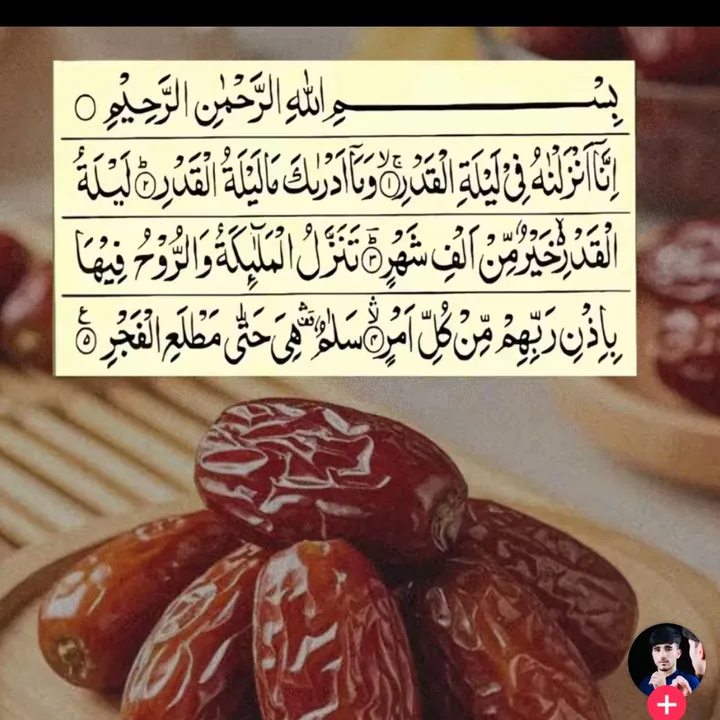 بِسْمِ اللهِ الرَّحْمٰنِ الرَّحِيْمِ ۝
اِنَّاۤ اَنْزَلْنٰهُ فِیْ لَیْلَةِ الْقَدْرِ ۚۖ۝۱ وَمَاۤ اَدْرٰىكَ مَا لَیْلَةُ الْقَدْرِ ؕ۝۲ لَیْلَةُ
الْقَدْرِ ۙ۬ خَیْرٌ مِّنْ اَلْفِ شَهْرٍ ؕ۝۳ تَنَزَّلُ الْمَلٰٓىِٕكَةُ وَالرُّوْحُ فِیْهَا
بِاِذْنِ رَبِّهِمْ مِّنْ كُلِّ اَمْرٍ ۙۛ۝۴ سَلٰمٌ ۛ۫ هِیَ حَتّٰی مَطْلَعِ الْفَجْرِ ۠۝۵